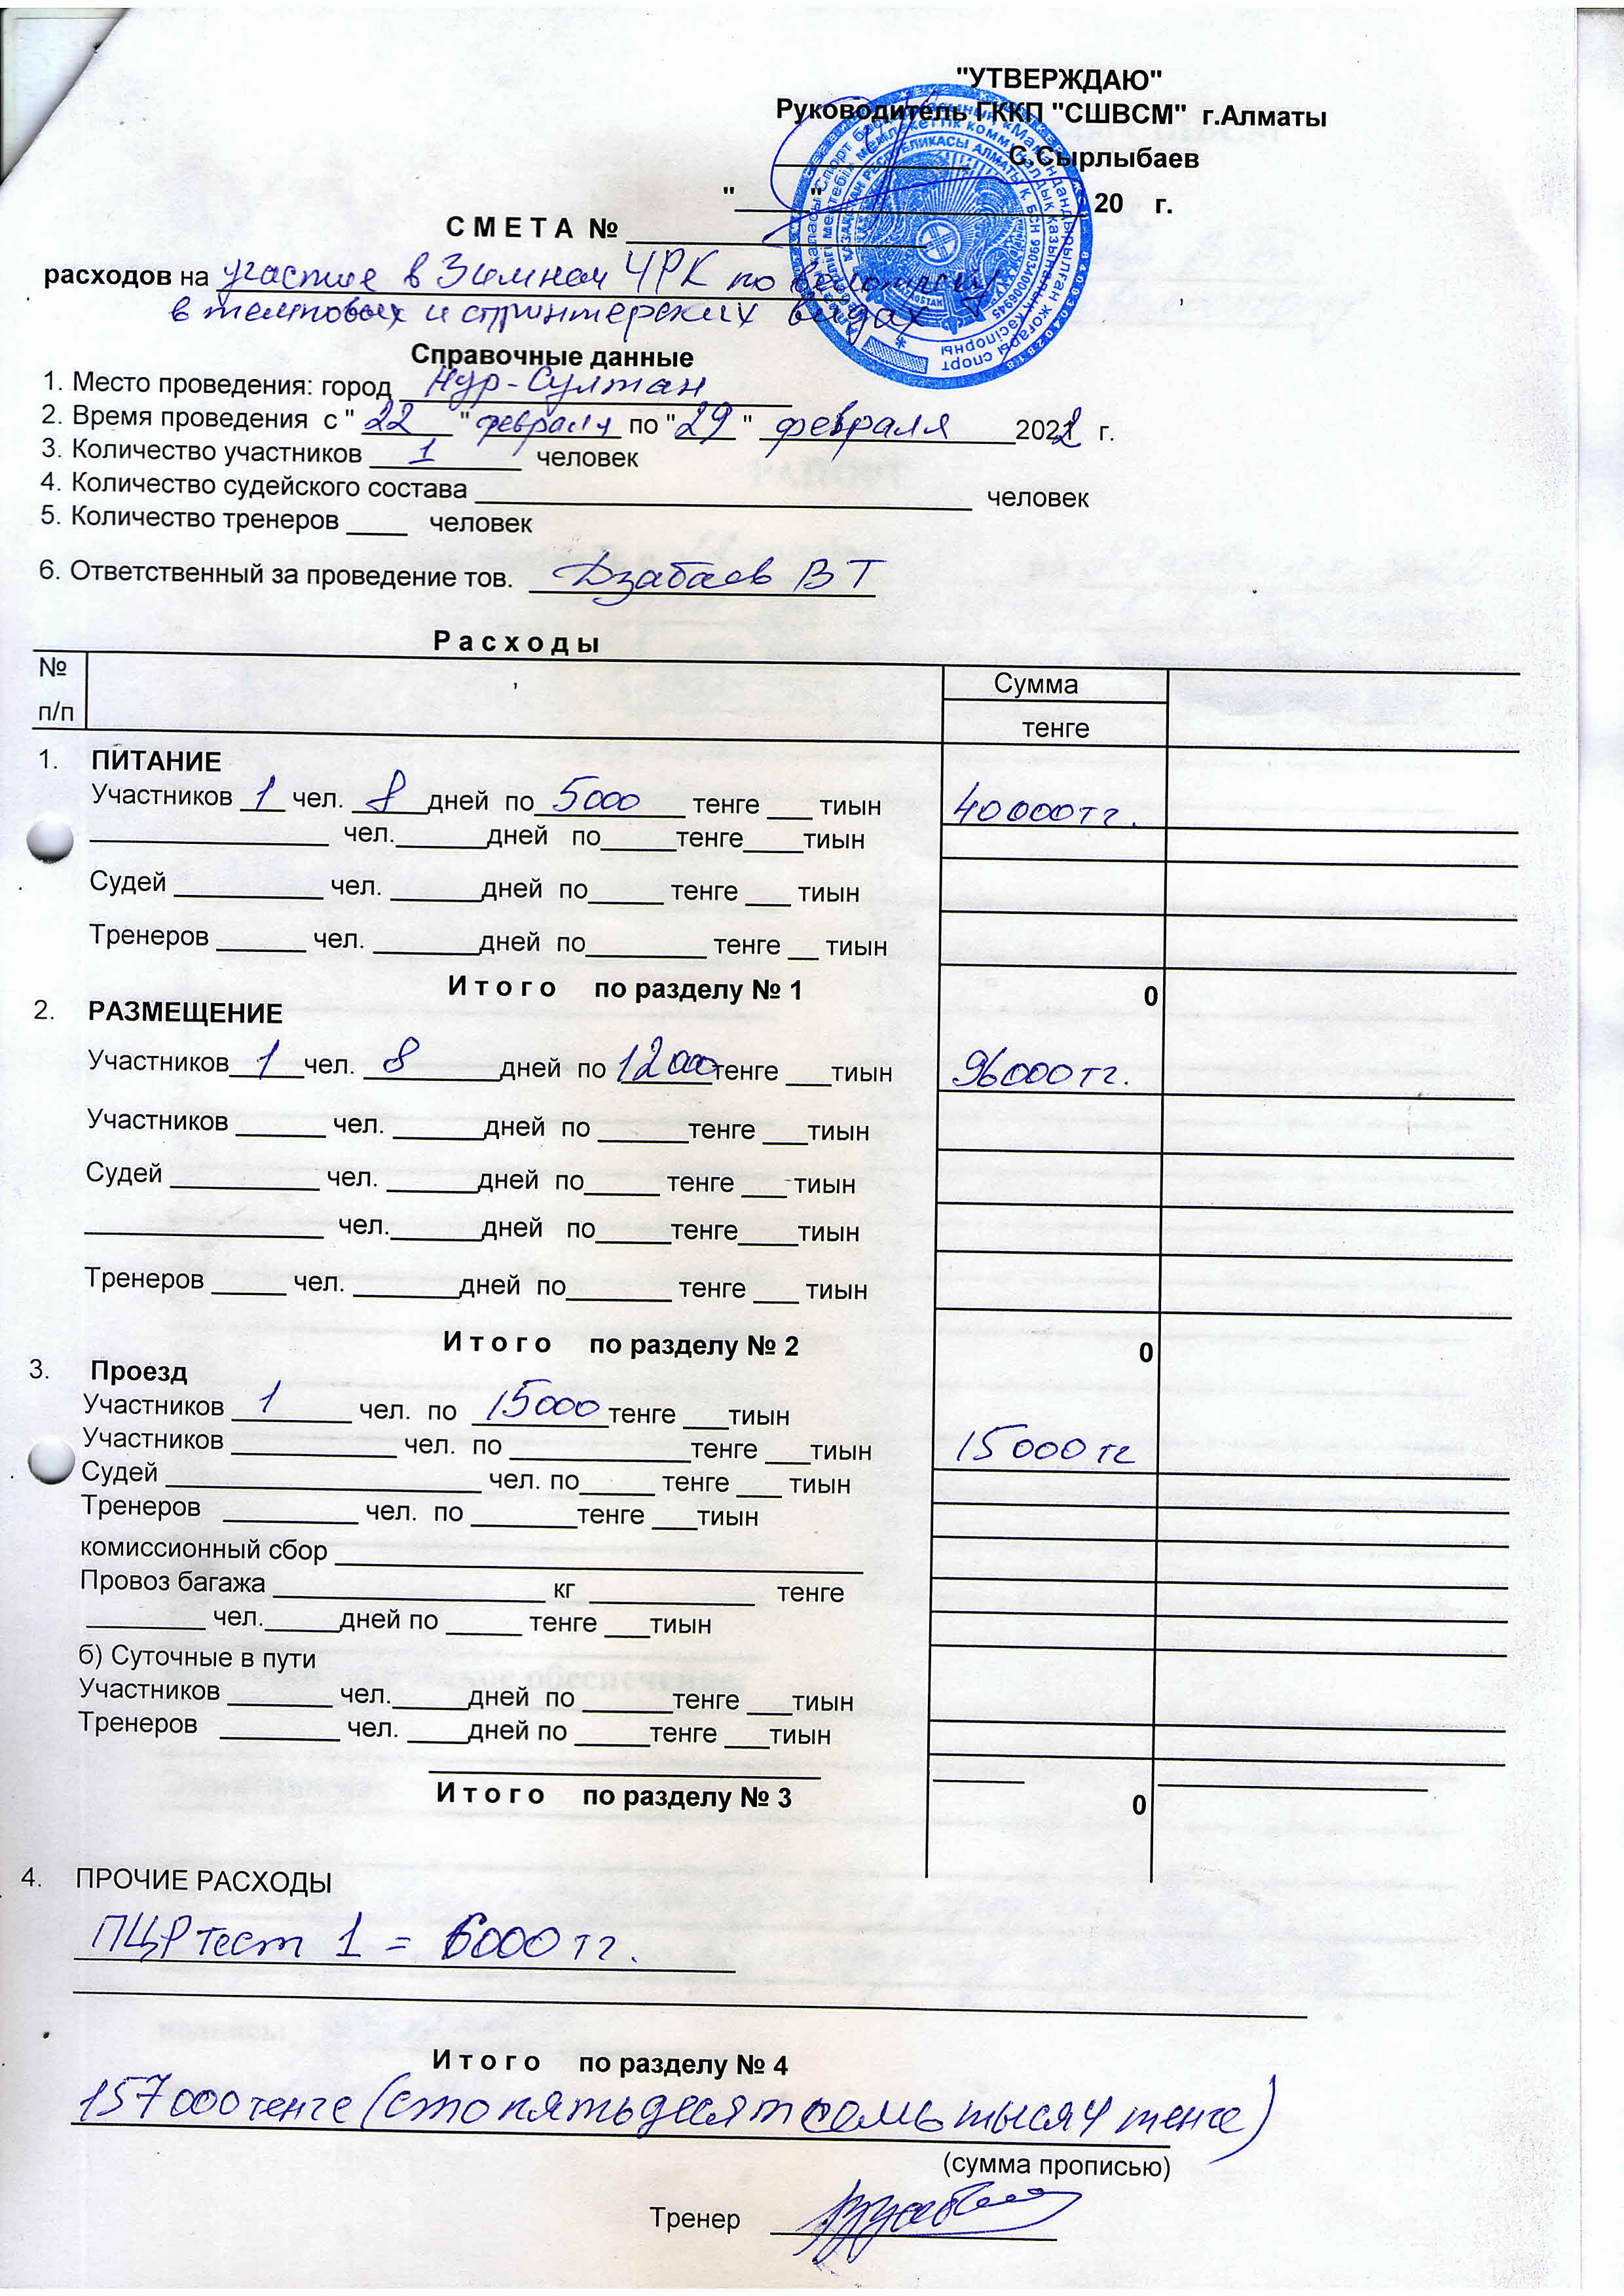 "УТВЕРЖДАЮ"
Руководитель ГККП "СШВСМ" г.Алматы
С.Сырлыбаев
"_____"__________________ 20 г.
С М Е Т А № ____________________
расходов на участие в Зимнем ЧРК по велотреку
в темповых и спринтерских видах
Справочные данные
1. Место проведения: город Нур-Султан
2. Время проведения с " 22 " февраля по " 29 " февраля 2022 г.
3. Количество участников 1 человек
4. Количество судейского состава _________________________________ человек
5. Количество тренеров ____ человек
6. Ответственный за проведение тов. Дзабаев В Т
Р а с х о д ы
№ п/п Сумма
тенге
1. ПИТАНИЕ
Участников 1 чел. 8 дней по 5000 тенге ___ тиын 40000тг.
________________ чел.______дней по_____тенге____тиын
Судей __________ чел. ______дней по_____ тенге ___ тиын
Тренеров ______ чел. _______дней по________ тенге __ тиын
И т о г о по разделу № 1 0
2. РАЗМЕЩЕНИЕ
Участников 1 чел. 8 дней по 1200 тенге ___тиын 96000тг.
Участников ______ чел. ______дней по ______тенге ___тиын
Судей __________ чел. ______дней по_____ тенге ___ тиын
________________ чел.______дней по_____тенге____тиын
Тренеров _____ чел. _______дней по_______ тенге ___ тиын
И т о г о по разделу № 2 0
3. Проезд
Участников 1 чел. по 15000 тенге ___тиын
Участников ___________ чел. по ____________тенге ___тиын 15000 тг
Судей _____________________ чел. по_____ тенге ___ тиын
Тренеров _________ чел. по _______тенге ___тиын
комиссионный сбор ___________________________________
Провоз багажа __________________ кг ___________ тенге
________ чел._____дней по _____ тенге ___тиын
б) Суточные в пути
Участников _______ чел._____дней по ______тенге ___тиын
Тренеров ________ чел. ____дней по _____тенге ___тиын
И т о г о по разделу № 3 0
4. ПРОЧИЕ РАСХОДЫ
ПЦР тест 1 = 6000 тг.
И т о г о по разделу № 4
157000 тенге (сто пятьдесят семь тысяч тенге)
(сумма прописью)
Тренер